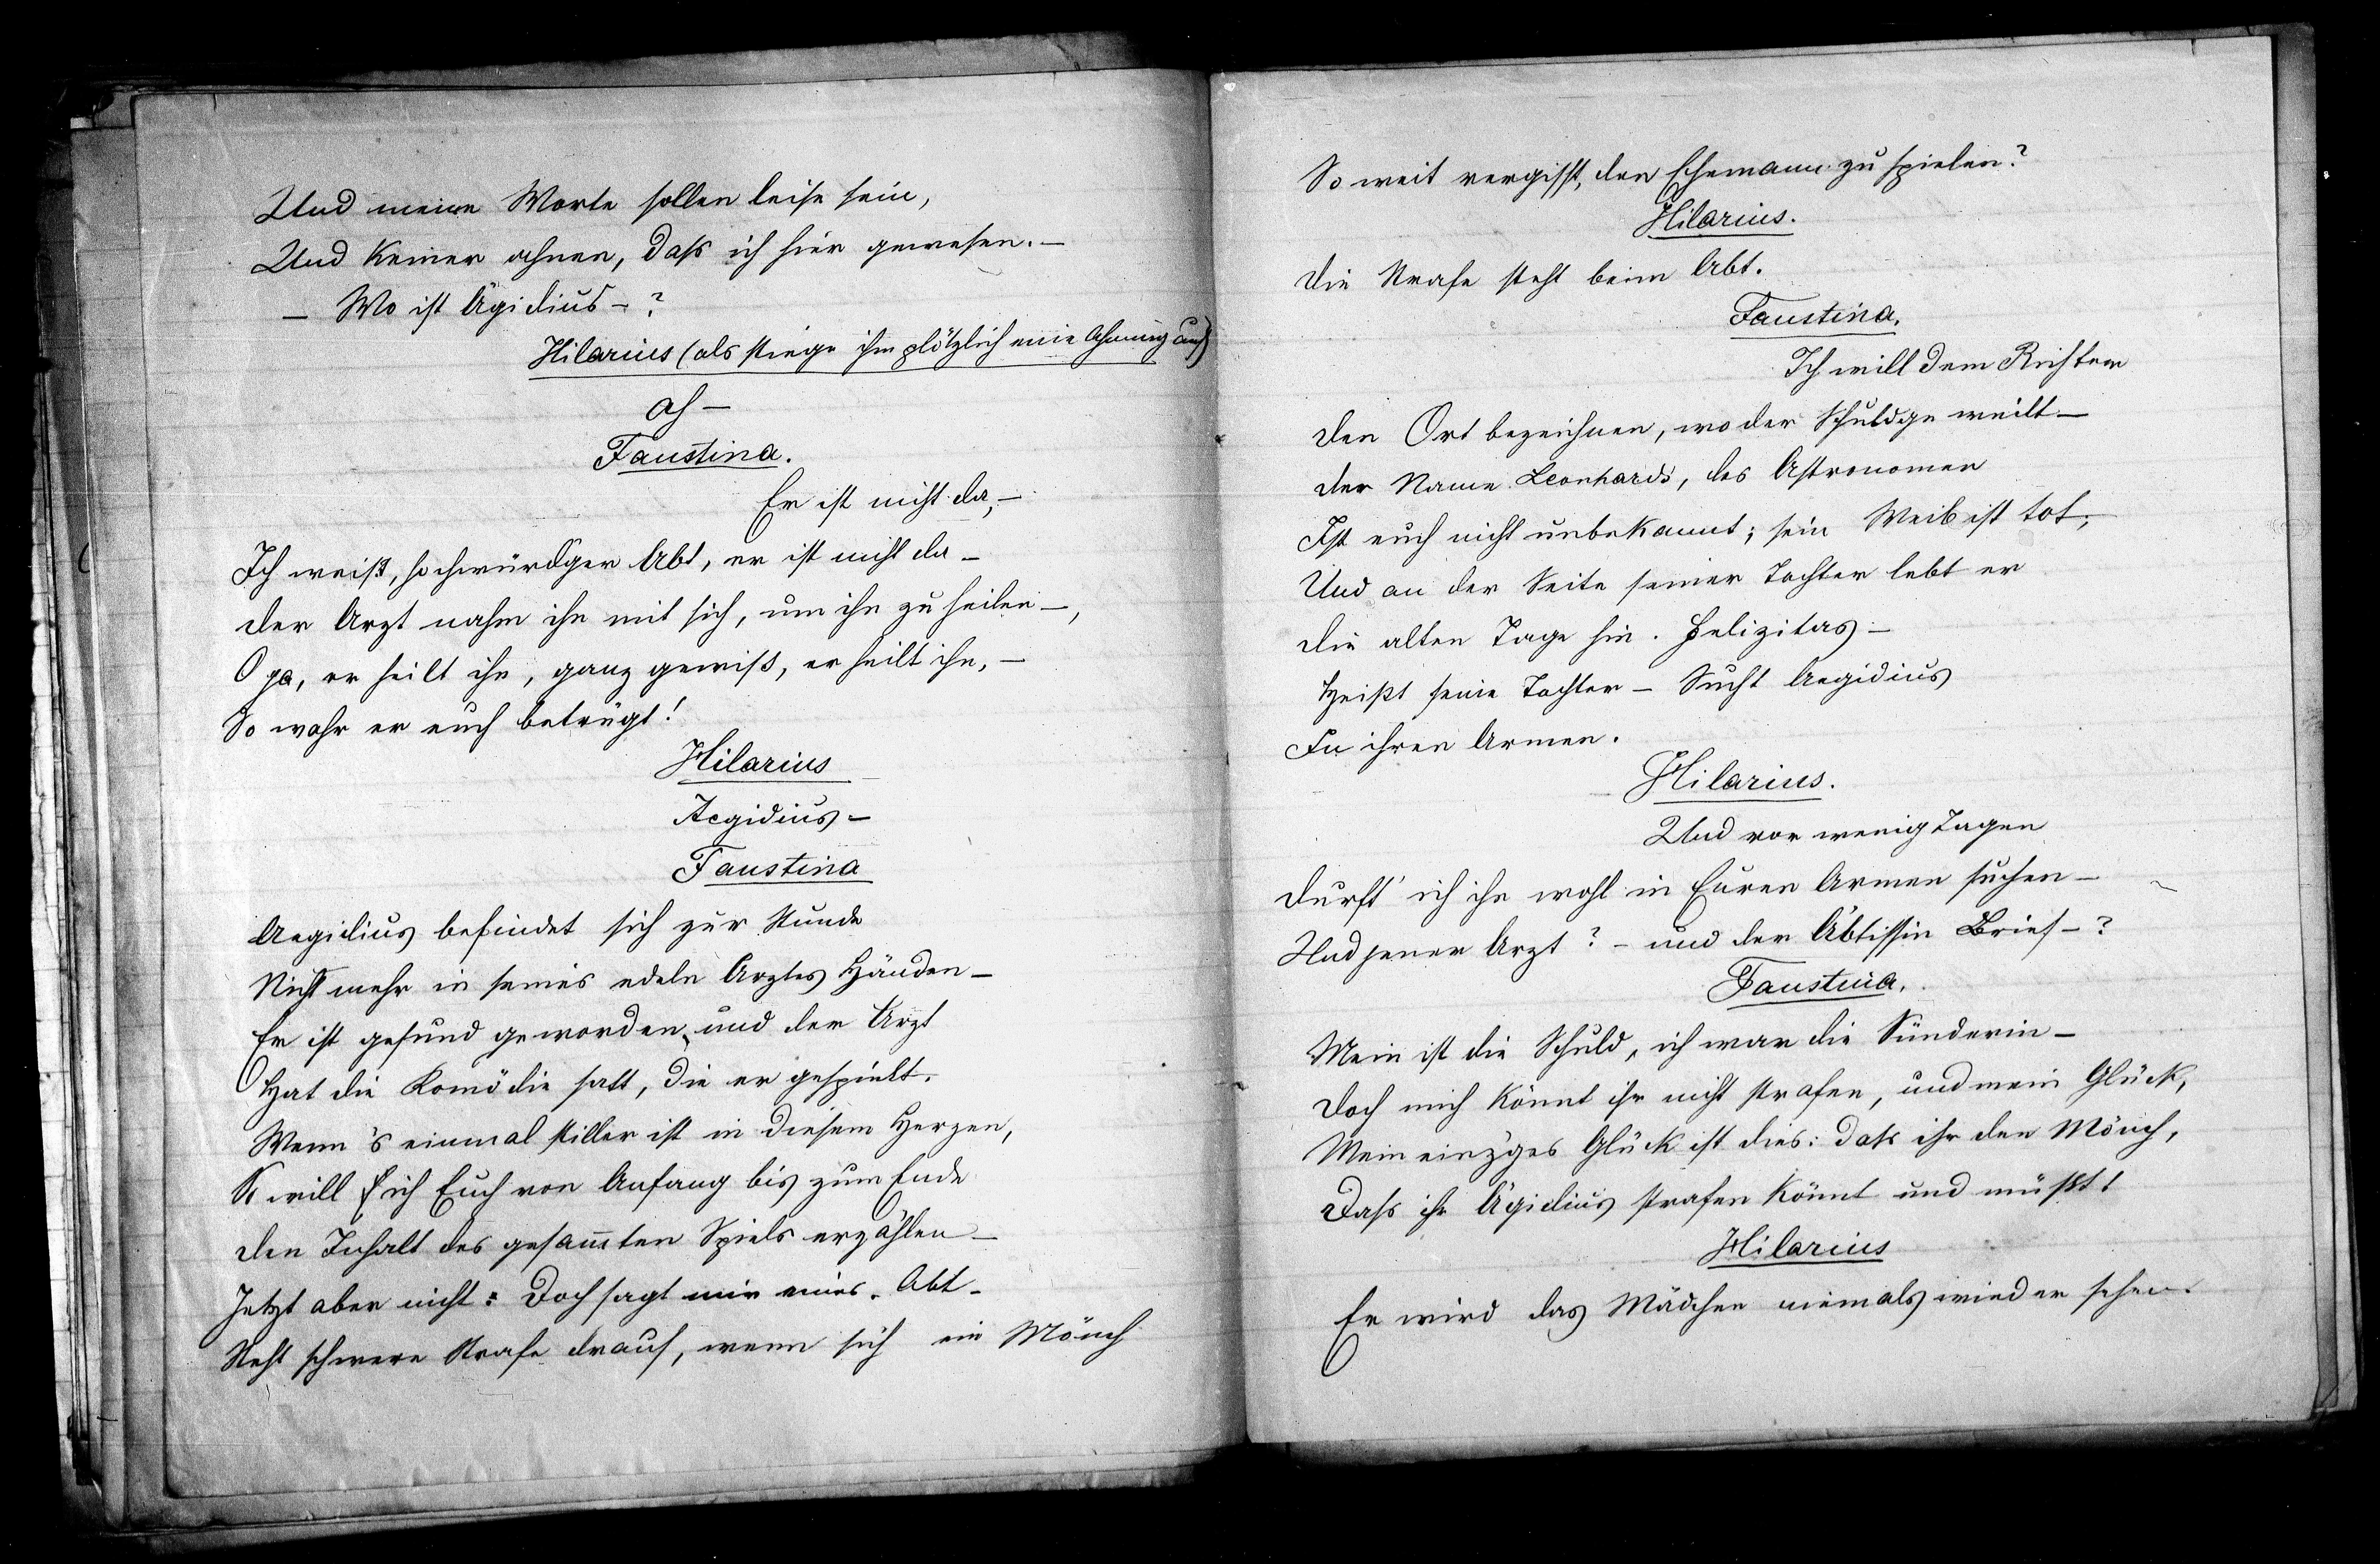 Und meine Worte sollen leise sein,
Und Keiner ahnen, daß ich hier gewesen. —
— Wo ist Ägidius — ?
Hilarius (als stiege ihm plötzlich eine Ahnung auf)
Ah —
Faustina.
Er ist nicht da, —
Ich weiß, hochwürdger Abt, er ist nicht da —
Der Arzt nahm ihn mit sich, um ihn zu heilen —,
O ja, er heilt ihn, ganz gewiß, er heilt ihn, —
So wahr er euch betrügt!
Hilarius
Aegidius —
Faustina
Aegidius befindet sich zur Stunde
Nicht mehr in seines edeln Arztes Händen —
Er ist gesund geworden, und der Arzt
Hat die Komödie satt, die er gespielt.
Wenn 's einmal stiller ist in diesem Herzen,
So will ich Euch von Anfang bis zum Ende
Den Inhalt des gesam̅ten Spiels erzählen —
Jetzt aber nicht: Doch sagt mir eines, Abt —
Steht schwere Strafe drauf, wenn sich ein Mönch
So weit vergißt, den Ehemann zu spielen?
Hilarius.
Die Strafe steht beim Abt.
Faustina.
Ich will dem Richter
Den Ort bezeichnen, wo der Schuldge weilt —
Der Name Leonhards, des Astronomen
Ist euch nicht unbekannt; sein Weib ist tot;
Und an der Seite seiner Tochter lebt er
Die alten Tage hin. Felizitas —
Heißt seine Tochter — Sucht Aegidius
In ihren Armen.
Hilarius.
Und vor wenig Tagen
Durft' ich ihn wohl in Euren Armen suchen —
Und jener Arzt? — und der Äbtissin Brief — ?
Faustina.
Mein ist die Schuld, ich war die Sünderin —
Doch mich könnt ihr nicht strafen, und mein Glück,
Mein einz'ges Glück ist dies: daß ihr den Mönch,
Daß ihr Ägidius strafen könnt und müßt!
Hilarius
Er wird das Mädchen niemals wieder sehen.